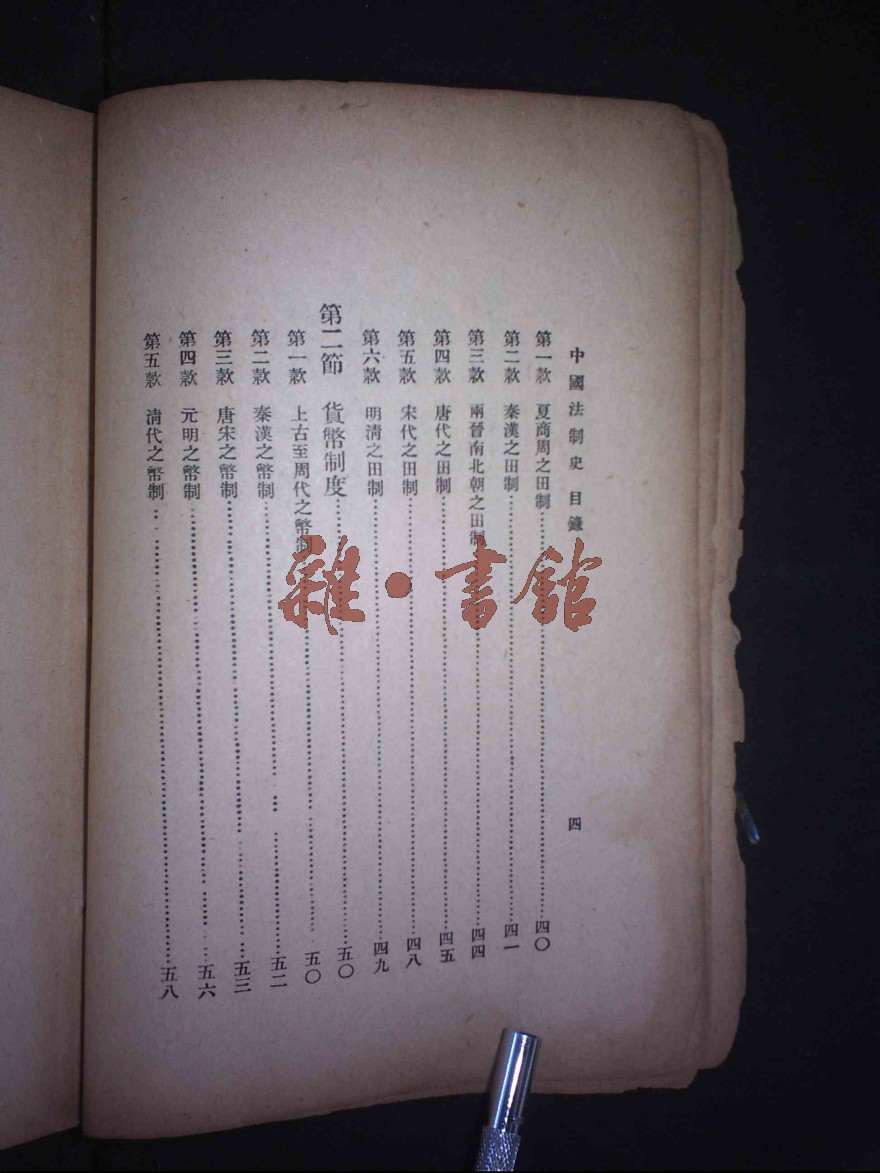 中國法制史 目錄 四
第一款 夏商周之田制……四〇
第二款 秦漢之田制……四一
第三款 兩晉南北朝之田制……四四
第四款 唐代之田制……四五
第五款 宋代之田制……四八
第六款 明清之田制……四九
第二節 貨幣制度……五〇
第一款 上古至周代之幣制……五〇
第二款 秦漢之幣制……五二
第三款 唐宋之幣制……五三
第四款 元明之幣制……五六
第五款 清代之幣制……五八
雜·書館